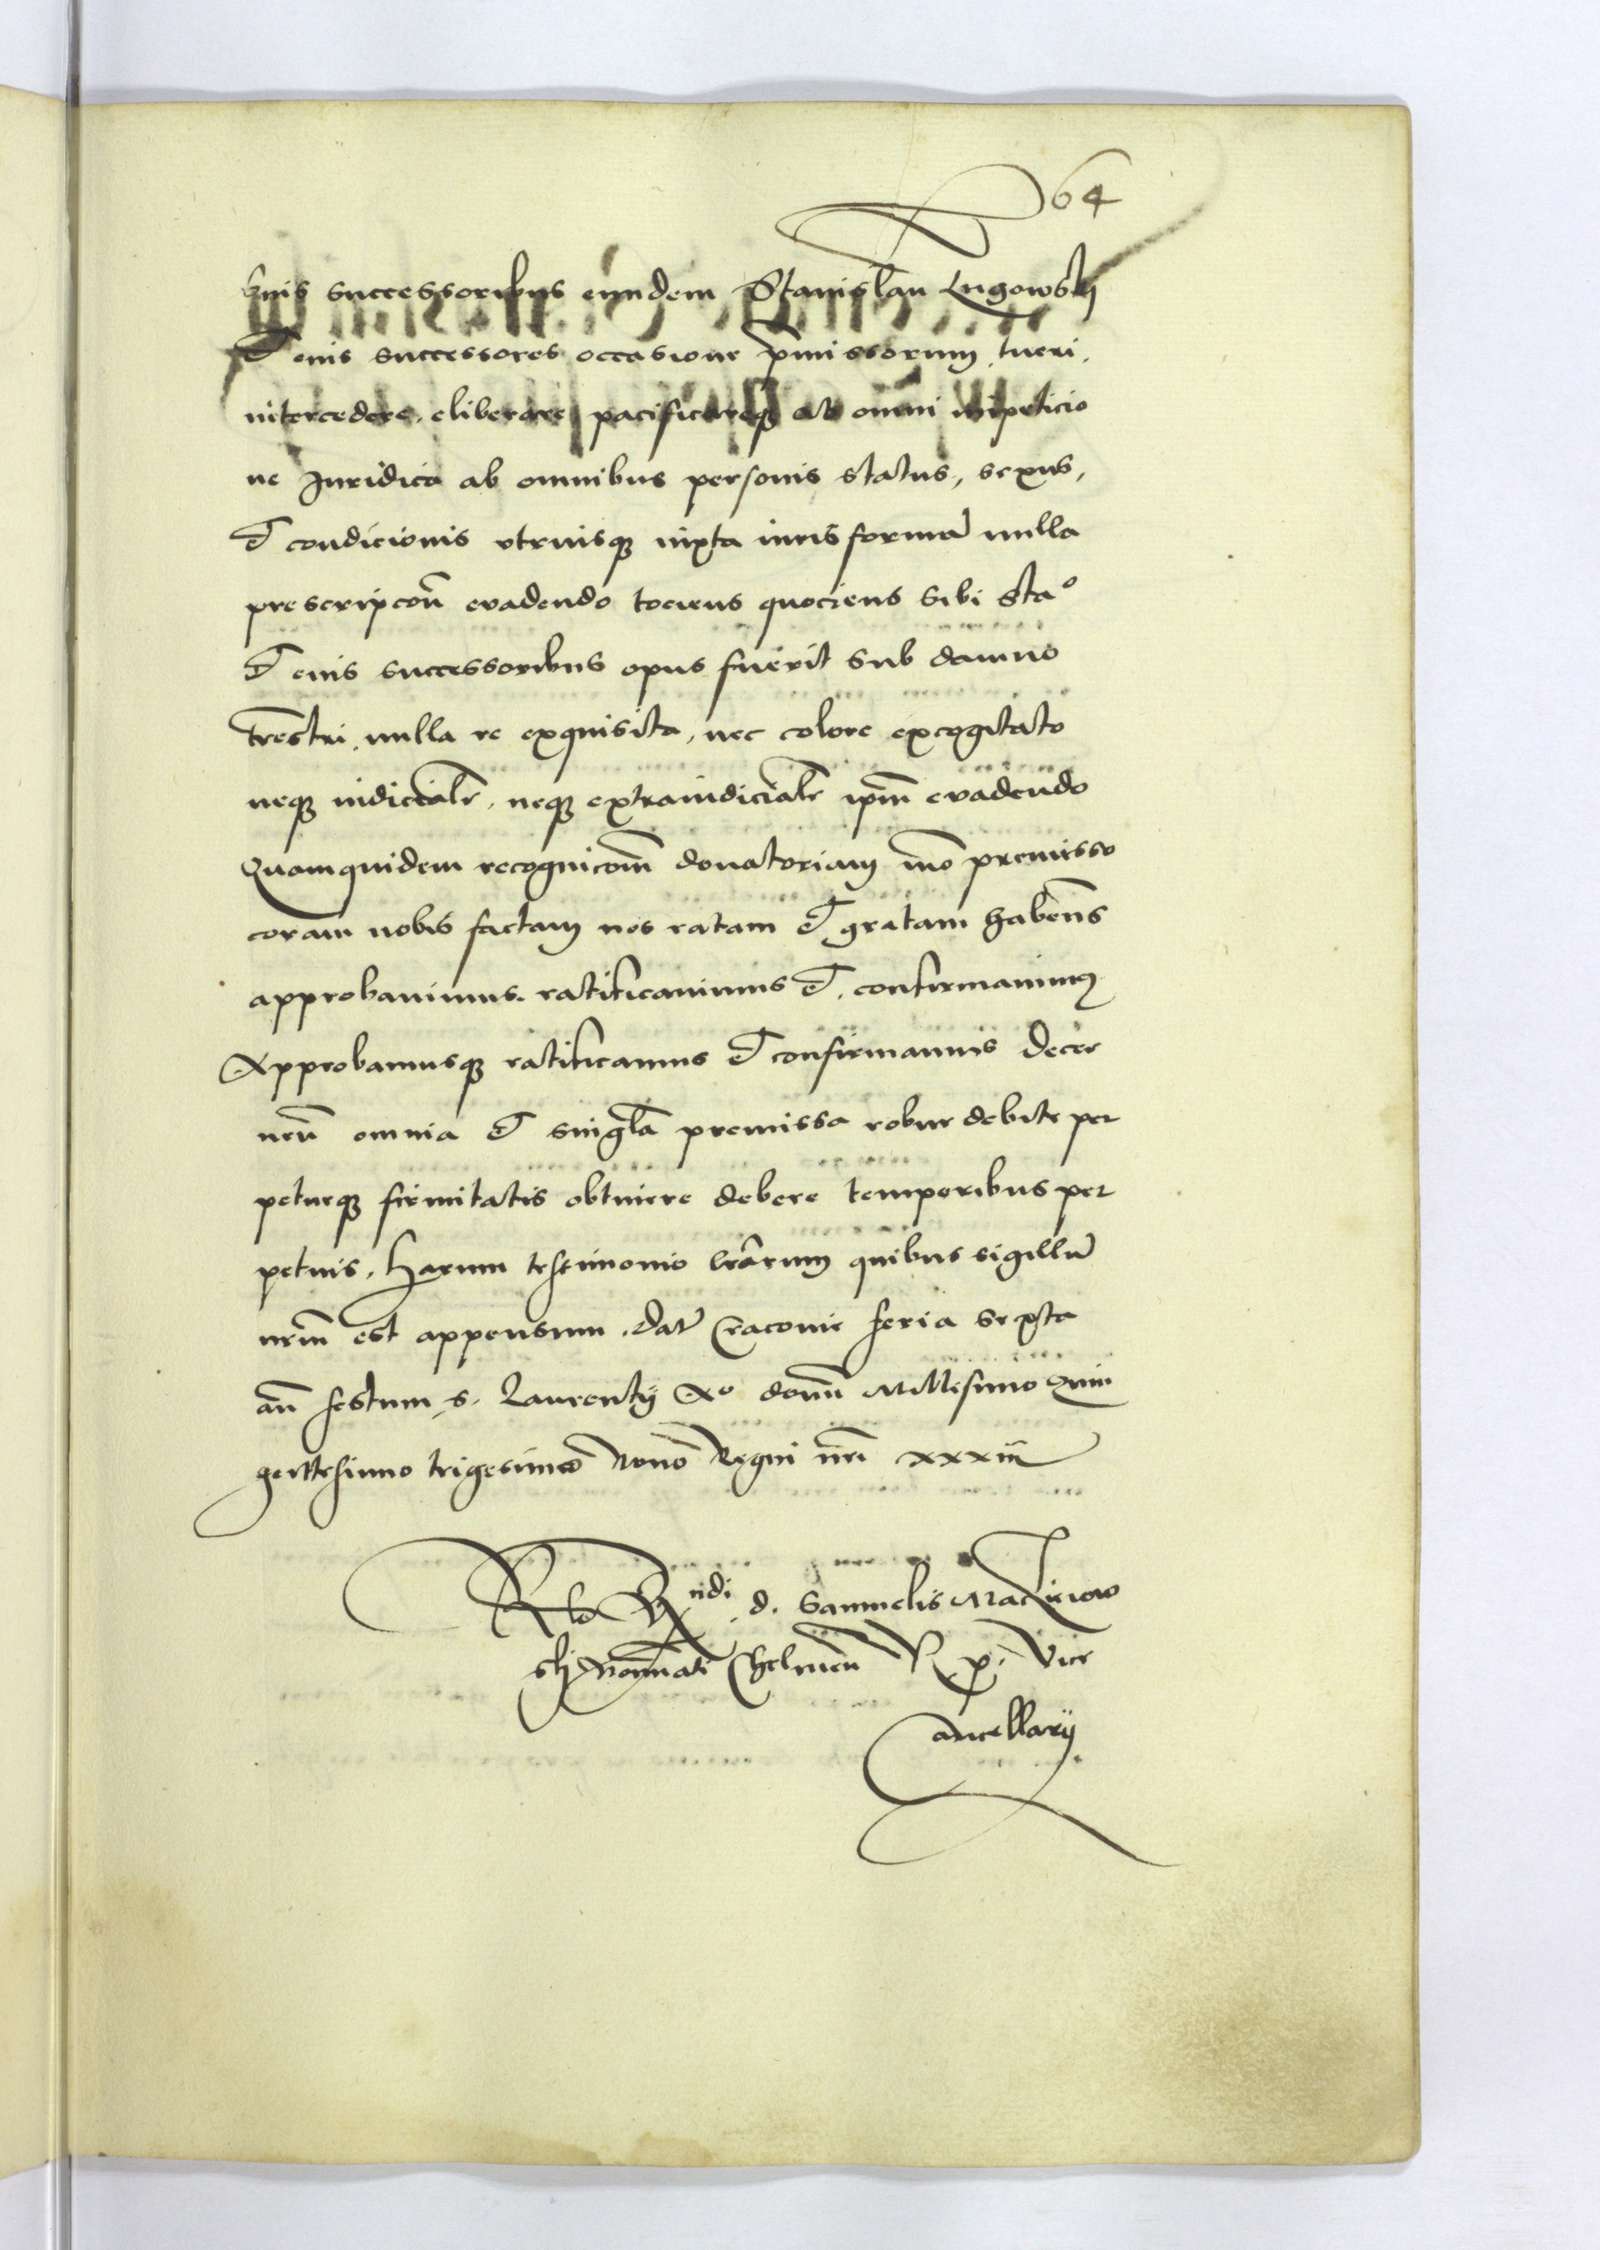 64
suis successoribus eundem Stanislau Lugowskj
et eius successores occasione pmissorum tueri.
intercedere. eliberare pacificareq ab omni impeticio
ne Juridica ab omnibus personis status, sexus,
et condicionis vtriusq iuxta iuris forma nulla
prescripcon evadendo tociens quociens sibi Sta°
et eius successoribus opus fuerit sub damno
trestri. nulla re exquisita, nec colore excogitato
neq iudiciale, neq extraiudiciale ipm evadendo
Quamquidem recognicom donatoriam mo premisso
coram nobis factam nos ratam et gratam habens
approbavimus. ratificavimus et. confirmavimus
Approbamusq ratificamus et confirmamus decer
nen omnia et singla premissa robur debite per
petueq firmitatis obtinere debere temporibus per
petuis. Harum testimonio lrarum quibus sigillu
nrm est appensum. dat Cracovie feria sexta
an festum s. Laurentij Ao domi Millesimo Quin
gentesimo trigesimo Nono Regni nri xxxiii
Rlo Rndi d. Samuelis Macziiow
skj Nominati Chelmen R p. Vice
Cancellarij